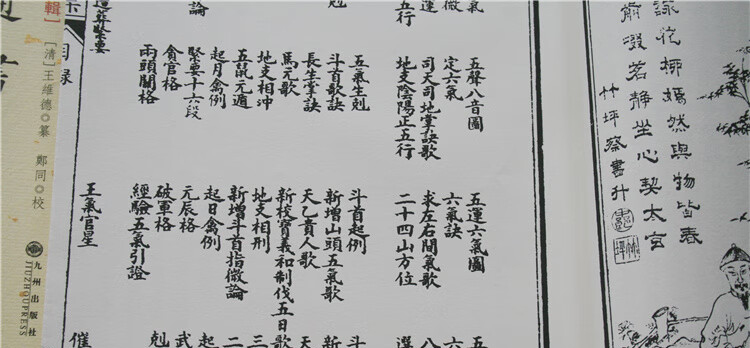 花柳嫣然與物皆春
啜茗静坐心契太
竹坪蔡書升
五聲八音圖
定六氣
司天司地掌訣歌
地支陰陽正五行
五氣生剋
斗首歌訣
長生掌訣
馬元歌
地支相沖
五鼠元遁
起月禽例
緊要十六段
貪官格
兩頭關格
五運六氣圖
六氣訣
求左右間氣歌
二十四山方位
斗首起例
新增山頭五氣歌
天乙貴人歌
新校寶義和制伐五日歌
地支相刑
新增斗首指微論
起日禽例
元辰格
破軍格
經驗五氣引證
王氣官星
造葬緊要
目錄
輯
[清]王維德◎纂 鄭同◎校
九州出版社
JIUZHOUPRESS